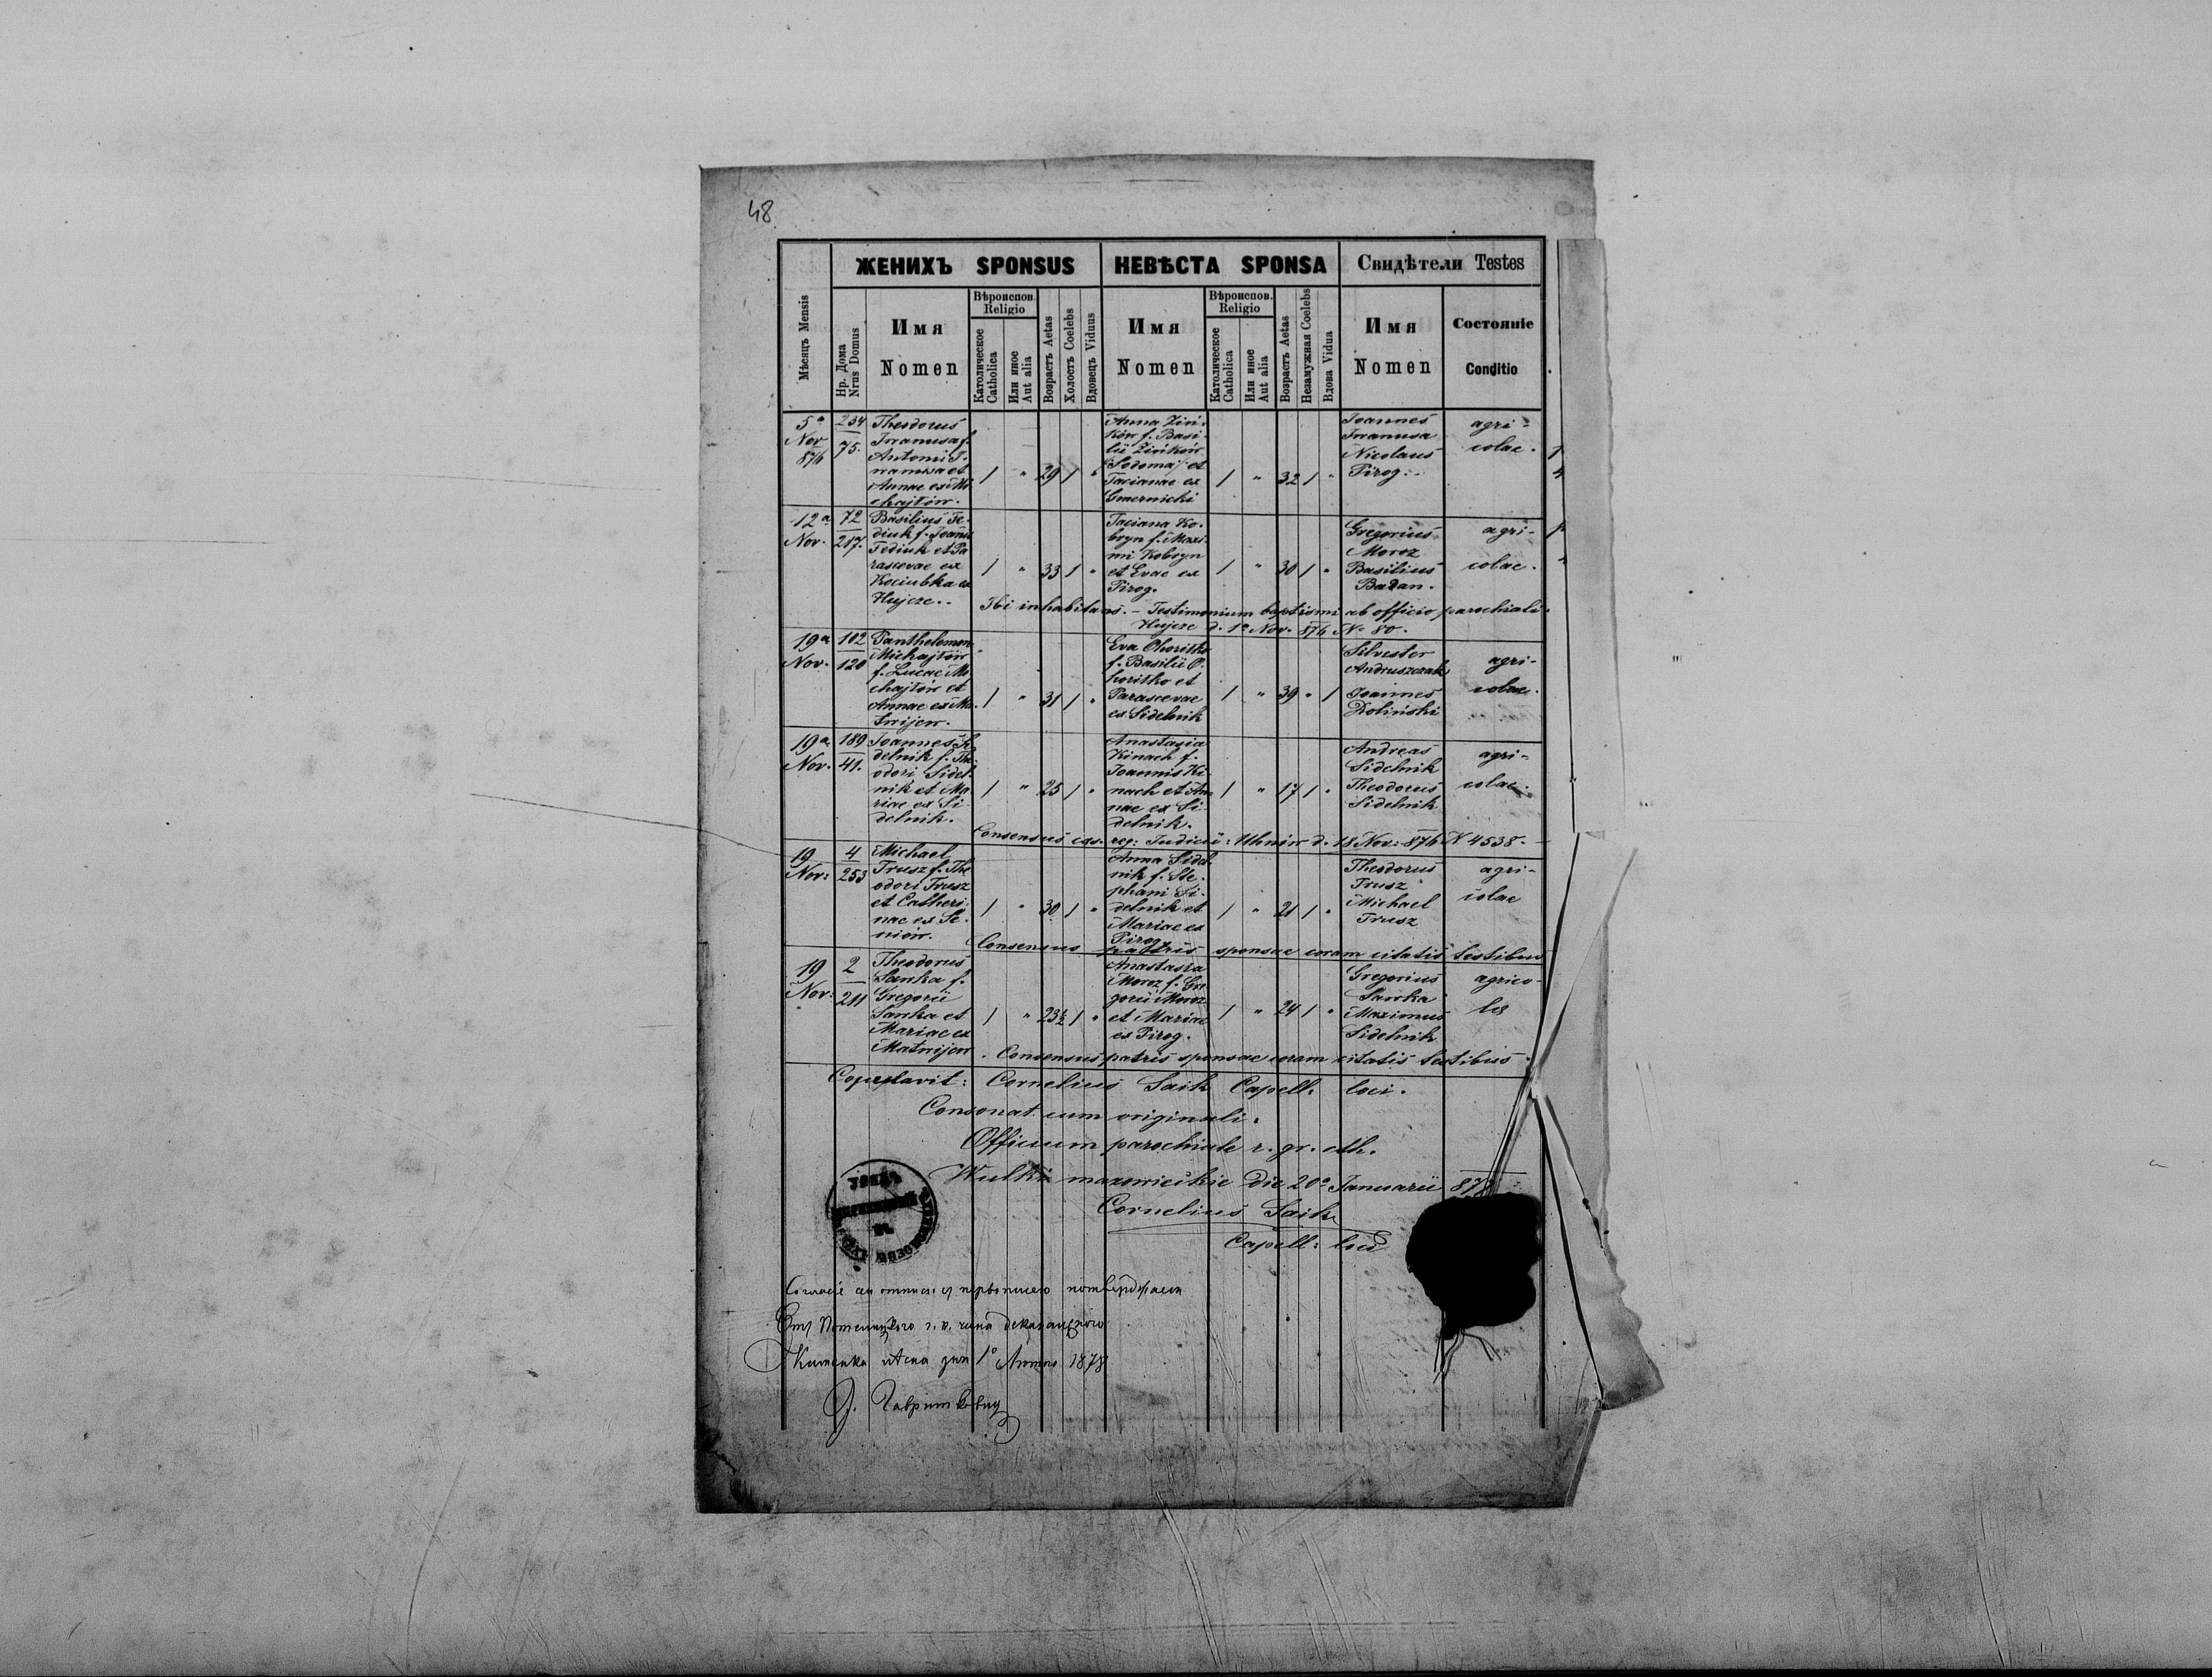 48
ЖЕНИХЪ SPONSUS
НЕВѢСТА SPONSA
Свидѣтели Testes
Мѣсяцъ Mensis
Нр. Дома
Nrus Domus
Имя
Nomen
Вѣроиспов.
Religio
Католическое
Catholica
Или иное
Aut alia
Возрастъ Aetas
Холостъ Coelebs
Вдовецъ Viduus
Имя
Nomen
Вѣроиспов.
Religio
Католическое
Catholica
Или иное
Aut alia
Возрастъ Aetas
Незамужная Coelebs
Вдова Vidua
Имя
Nomen
Состояніе
Conditio
5a
Nov
876
234
75.
Theodorus
Iwanusa f.
Antonii I-
wanusa et
Annae ex Mi
chajłów.
1 " 29 1 "
Anna Zin-
ków f. Basi-
lii Zinków
Sodoma/ et
Tacianae ex
1 " 32 1 "
Joannes
Iwanusa
Nicolaus
Pirog.
agri-
colae.
12a
Nov.
72
217.
Basilius Fe-
diuk f. Joanis
Fediuk et Pa
rascevae ex
Kociubka ex
Hujcze.
1 " 33 1 "
Taciana Ko-
bryn f. Maxi-
mi Kobryn
et Evae ex
Pirog.
1 " 30 1 "
Gregorius
Moroz
Basilius
Badan.
agri-
colae.
Ibi inhabitans. - Testimonium baptismi ab officio parochiali
Hujcze d. 1a Nov. 876 N. 80.
19a
Nov.
102
120
Panthelemon
Michajłów
f. Lucae Mi
chajłów et
Annae ex Ma
twijew.
1 " 31 1 "
Eva Choritko
f. Basilii C-
horitko et
Parascevae
ex Sidelnik
1 " 39 " 1
Silvester
Andruszczak
Joannes
Zoliński
agri-
colae.
19a
Nov.
189
41.
Joannes Si
delnik f. The
odori Sidel-
nik et Ma
riae ex Si-
delnik.
1 " 25 1 "
Anastasia
Kinach f.
Joannis Ki-
nach et An
nae ex Si-
delnik.
1 " 17 1 "
Andreas
Sidelnik
Theodorus
Sidelnik
agri-
colae.
Consensus caes. reg: Judicii: Uhnów d. 18 Nov: 876 N 4538.
19
Nov:
4
253
Michael
Trusz f. The
odori Trusz
et Catheri-
nae ex Se-
niów.
1 " 30 1 "
Anna Sidel
nik f. Ste-
phani Si-
delnik et
Mariae ex
Pirog
1 " 21 1 "
Theodorus
Trusz
Michael
Trusz
agri-
colae
Consensus patris sponsae coram citatis testibus
19
Nov:
2
211
Theodorus
Sawka f.
Gregorii
Sawka et
Mariae ex
Matwijew
1 " 23½ 1 "
Anastasia
Moroz f. Gre
gorii Moroz
et Mariae
ex Pirog.
1 " 24 1 "
Gregorius
Sawka
Maximus
Sidelnik
agrico-
las
Consensus patris sponsae coram citatis testibus.
Copulavit: Cornelius Saik Capell: loci.
Consonat cum originali.
Officium parochiale r. gr. cth.
Wulki mazowieckie die 20a Januarii 87
Cornelius Saik
Capell: loci
УРЯДЪ